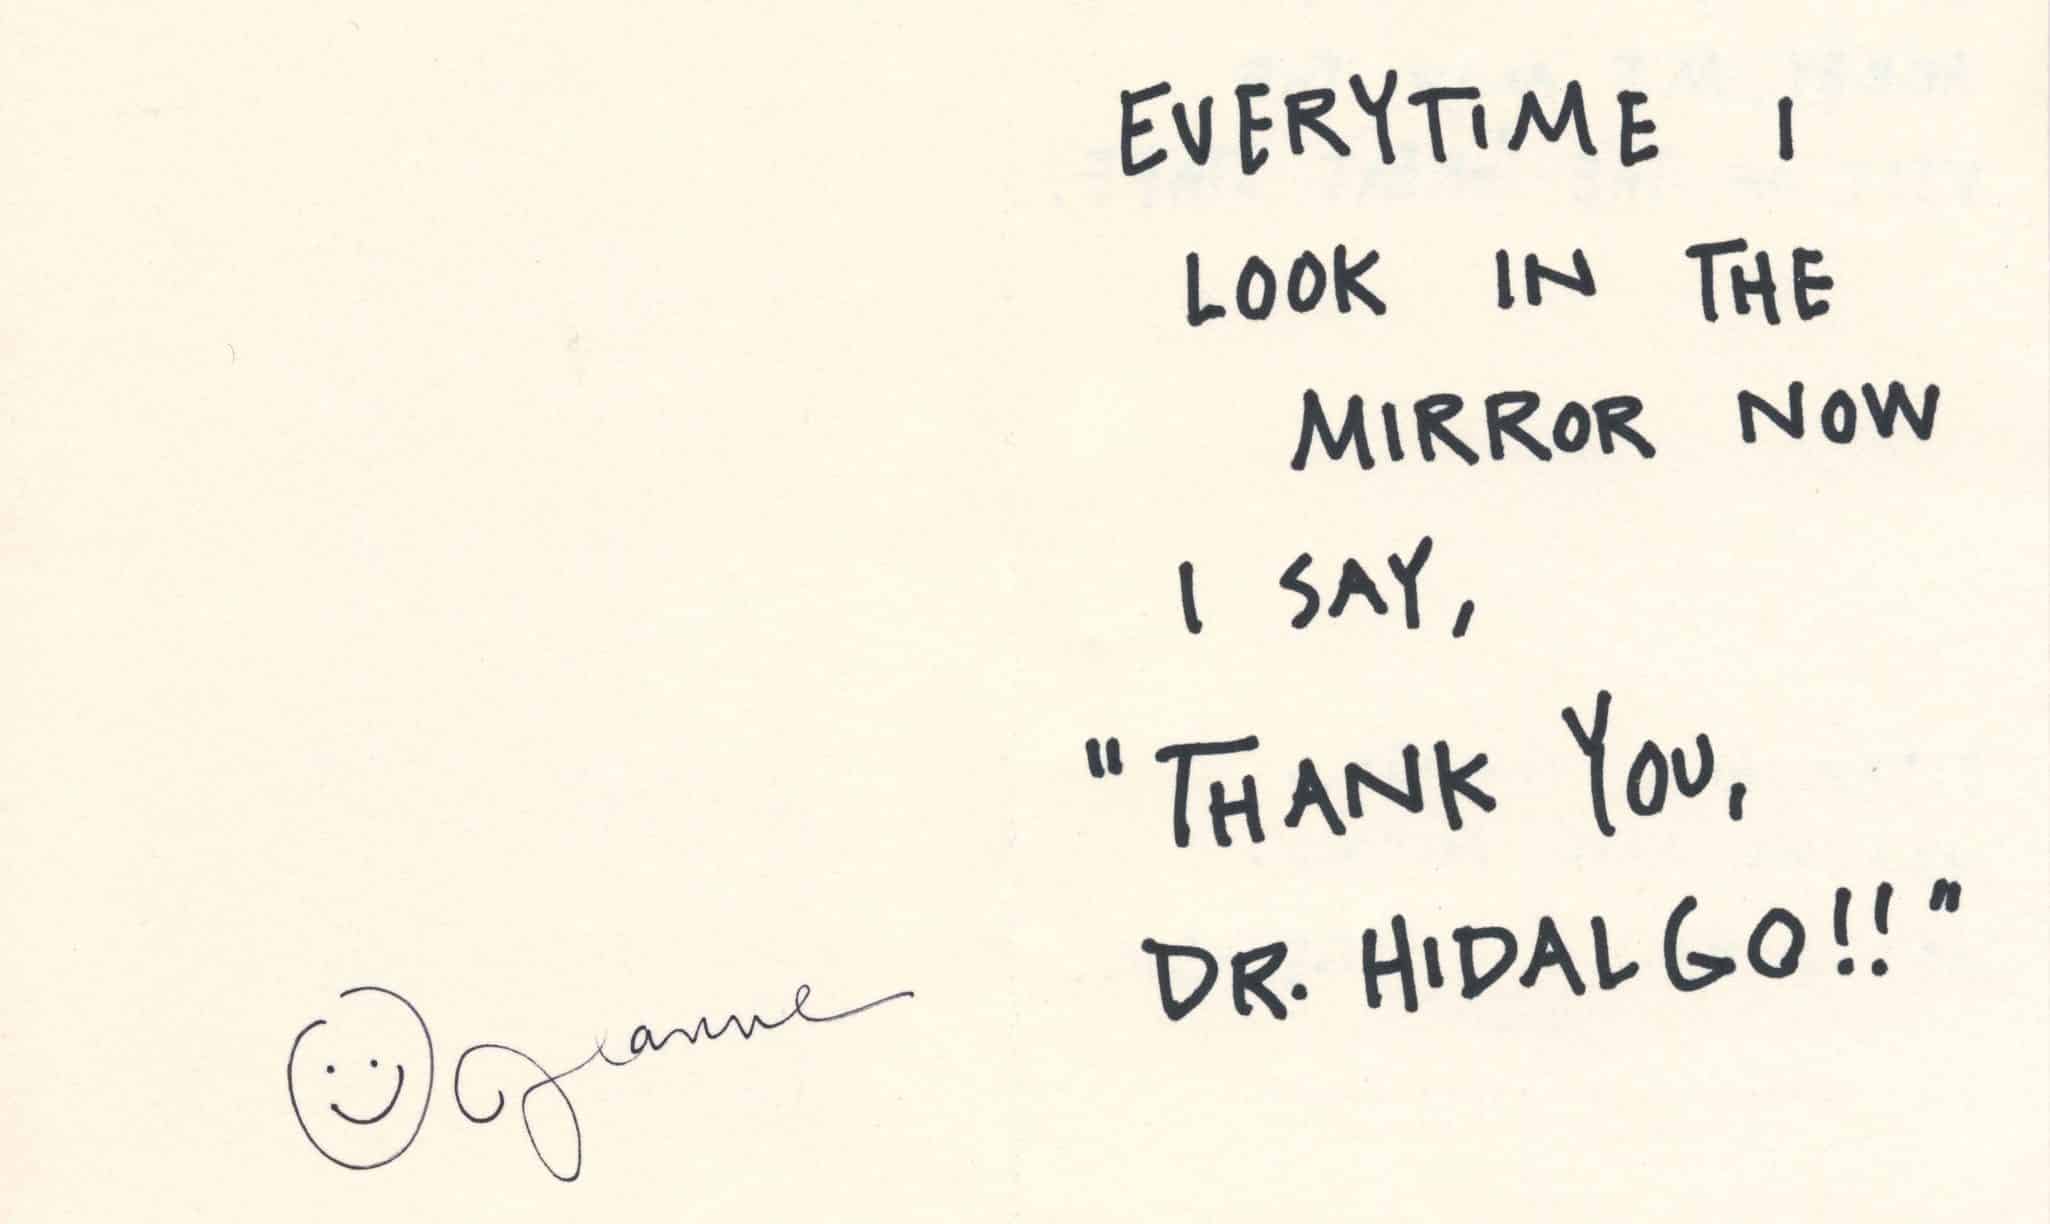 EVERYTIME I
LOOK IN THE
MIRROR NOW
I SAY,
"THANK YOU,
DR. HIDALGO!!"
Jeanne